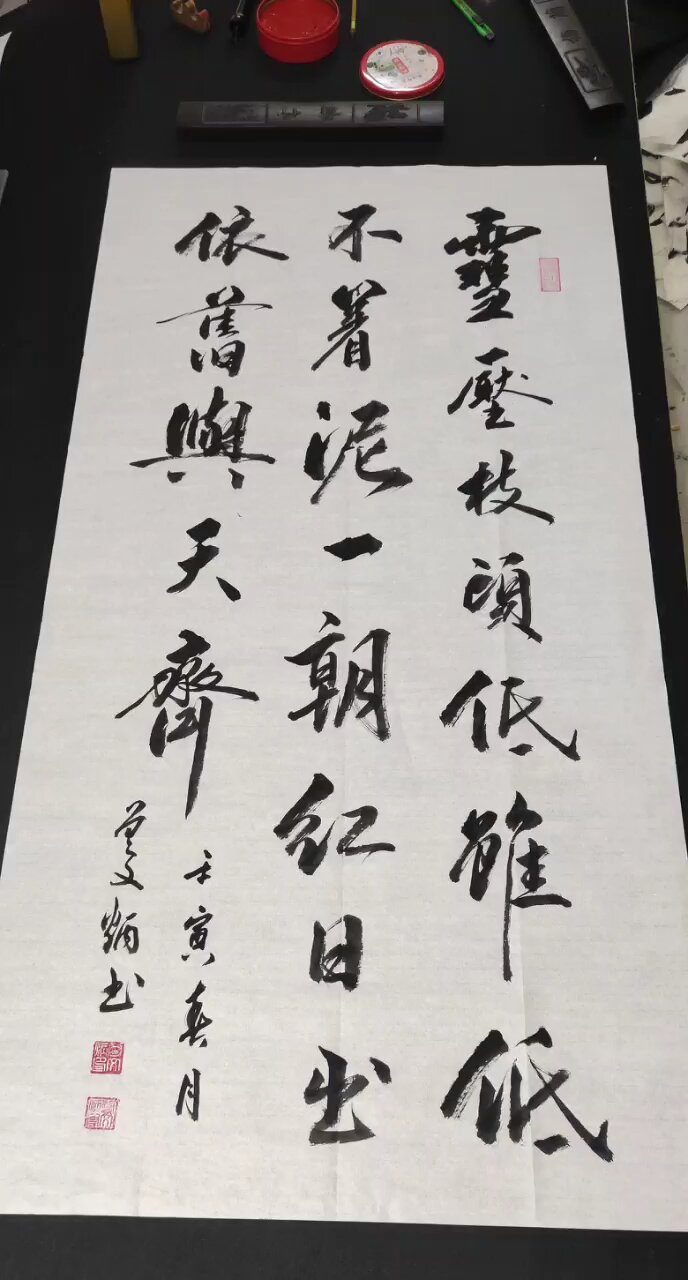 雪壓枝頭低雖低
不着泥一朝紅日出
依舊與天齊
壬寅春月
文炳书